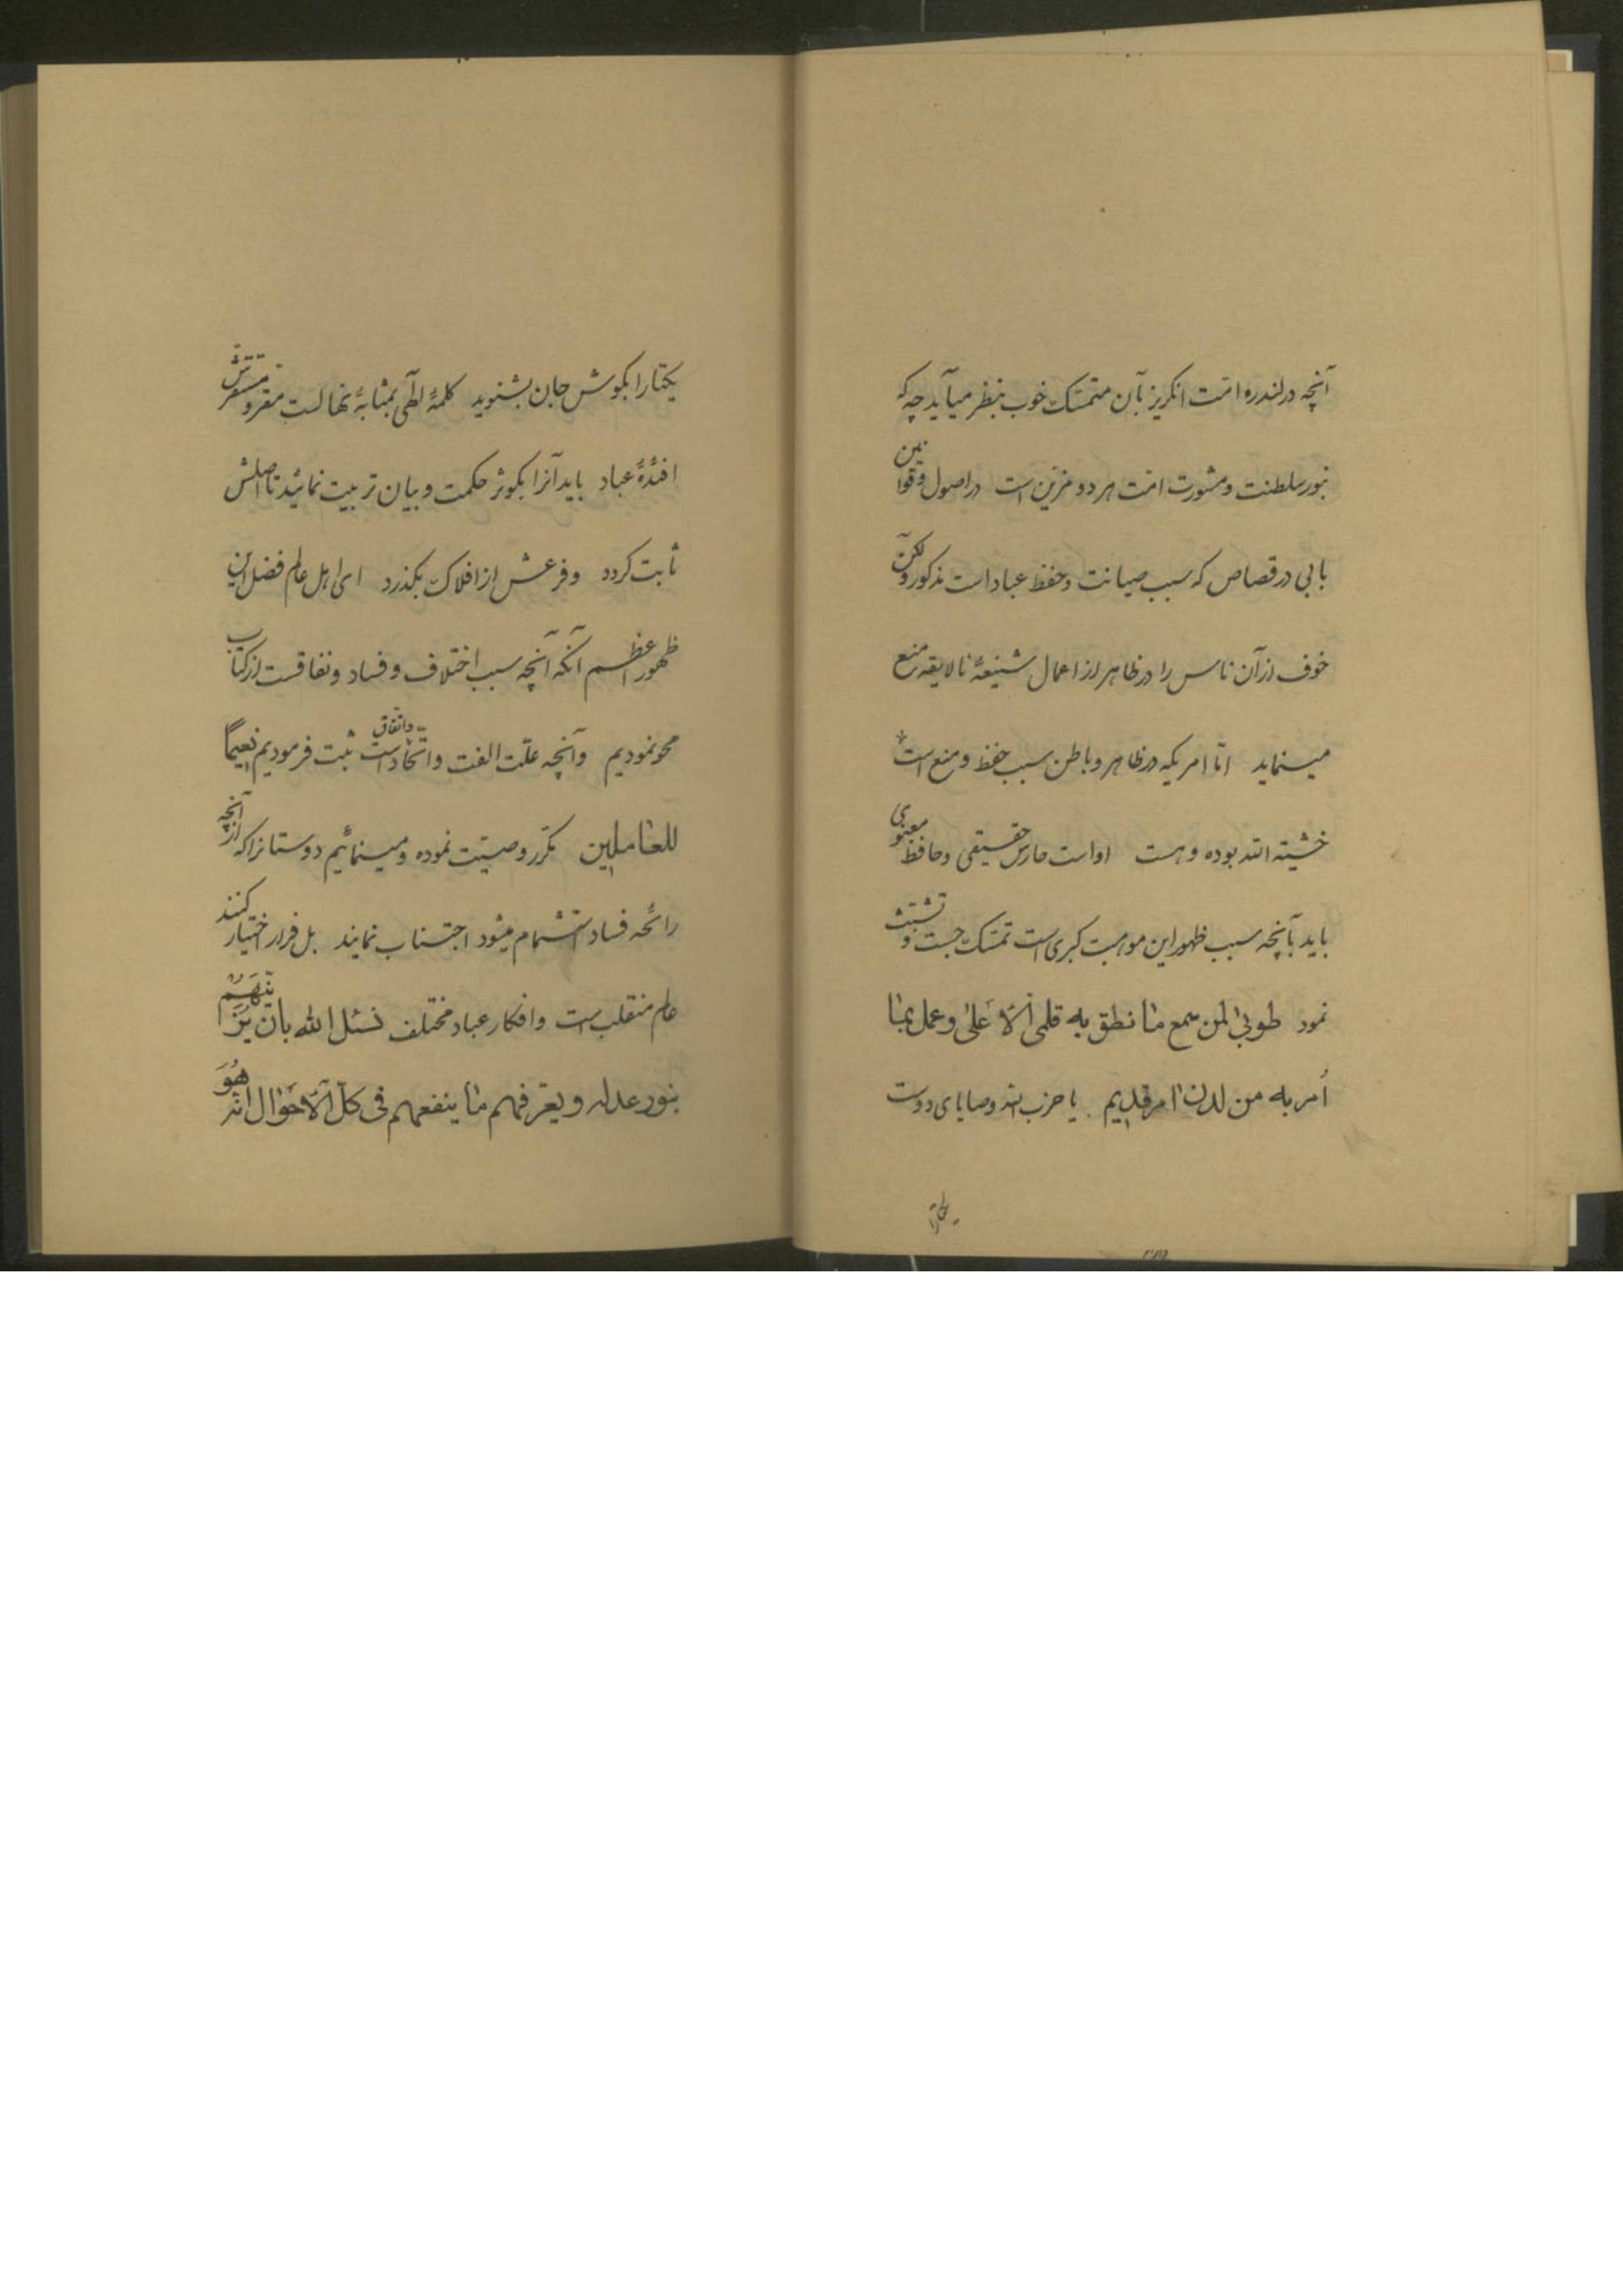 آنچه در لندره امّت انگریز بآن متمسّک خوب بنظر میآید چه که
بنور سلطنت و مشورت امّت هر دو مزیّن است در اصول و قوانین
بابی در قصاص که سبب صیانت و حفظ عباد است مذکور ولکن
خوف از آن ناس را در ظاهر از اعمال شنیعهٔ نالایقه منع
مینماید امّا امریکه در ظاهر و باطن سبب حفظ و منع است
خشیة الله بوده و هست اوست حارس حقیقی و حافظ معنوی
باید بآنچه سبب ظهور این موهبت کبری است تمسّک جست و تشبّث
نمود طوبی لمن سمع ما نطق به قلمی الأعلی و عمل بما
أمر به من لدن امر قدیم یا حزب الله وصایای دوست
یکتارا
یکتا را بگوش جان بشنوید کلمهٔ الهی بمثابهٔ نهالست مقرّ و مستقرّش
افئدهٔ عباد باید آنرا بکوثر حکمت و بیان تربیت نمائید تا اصلش
ثابت گردد و فرعش از افلاک بگذرد ای اهل عالم فضل این
ظهور اعظم آنکه آنچه سبب اختلاف و فساد و نفاقست از کتاب
محو نمودیم و آنچه علّت الفت و اتّحاد و اتّفاق است ثبت فرمودیم نعیماً
للعاملین مکرّر وصیّت نموده و مینمائیم دوستانرا که از آنچه
رائحه فساد استشمام میشود اجتناب نمایند بل فرار اختیار کنند
عالم منقلب است و افکار عباد مختلف نسئل الله بان یزیّنهم
بنور عدله و یعرّفهم ما ینفعهم فی کلّ الأحوال انّه هو